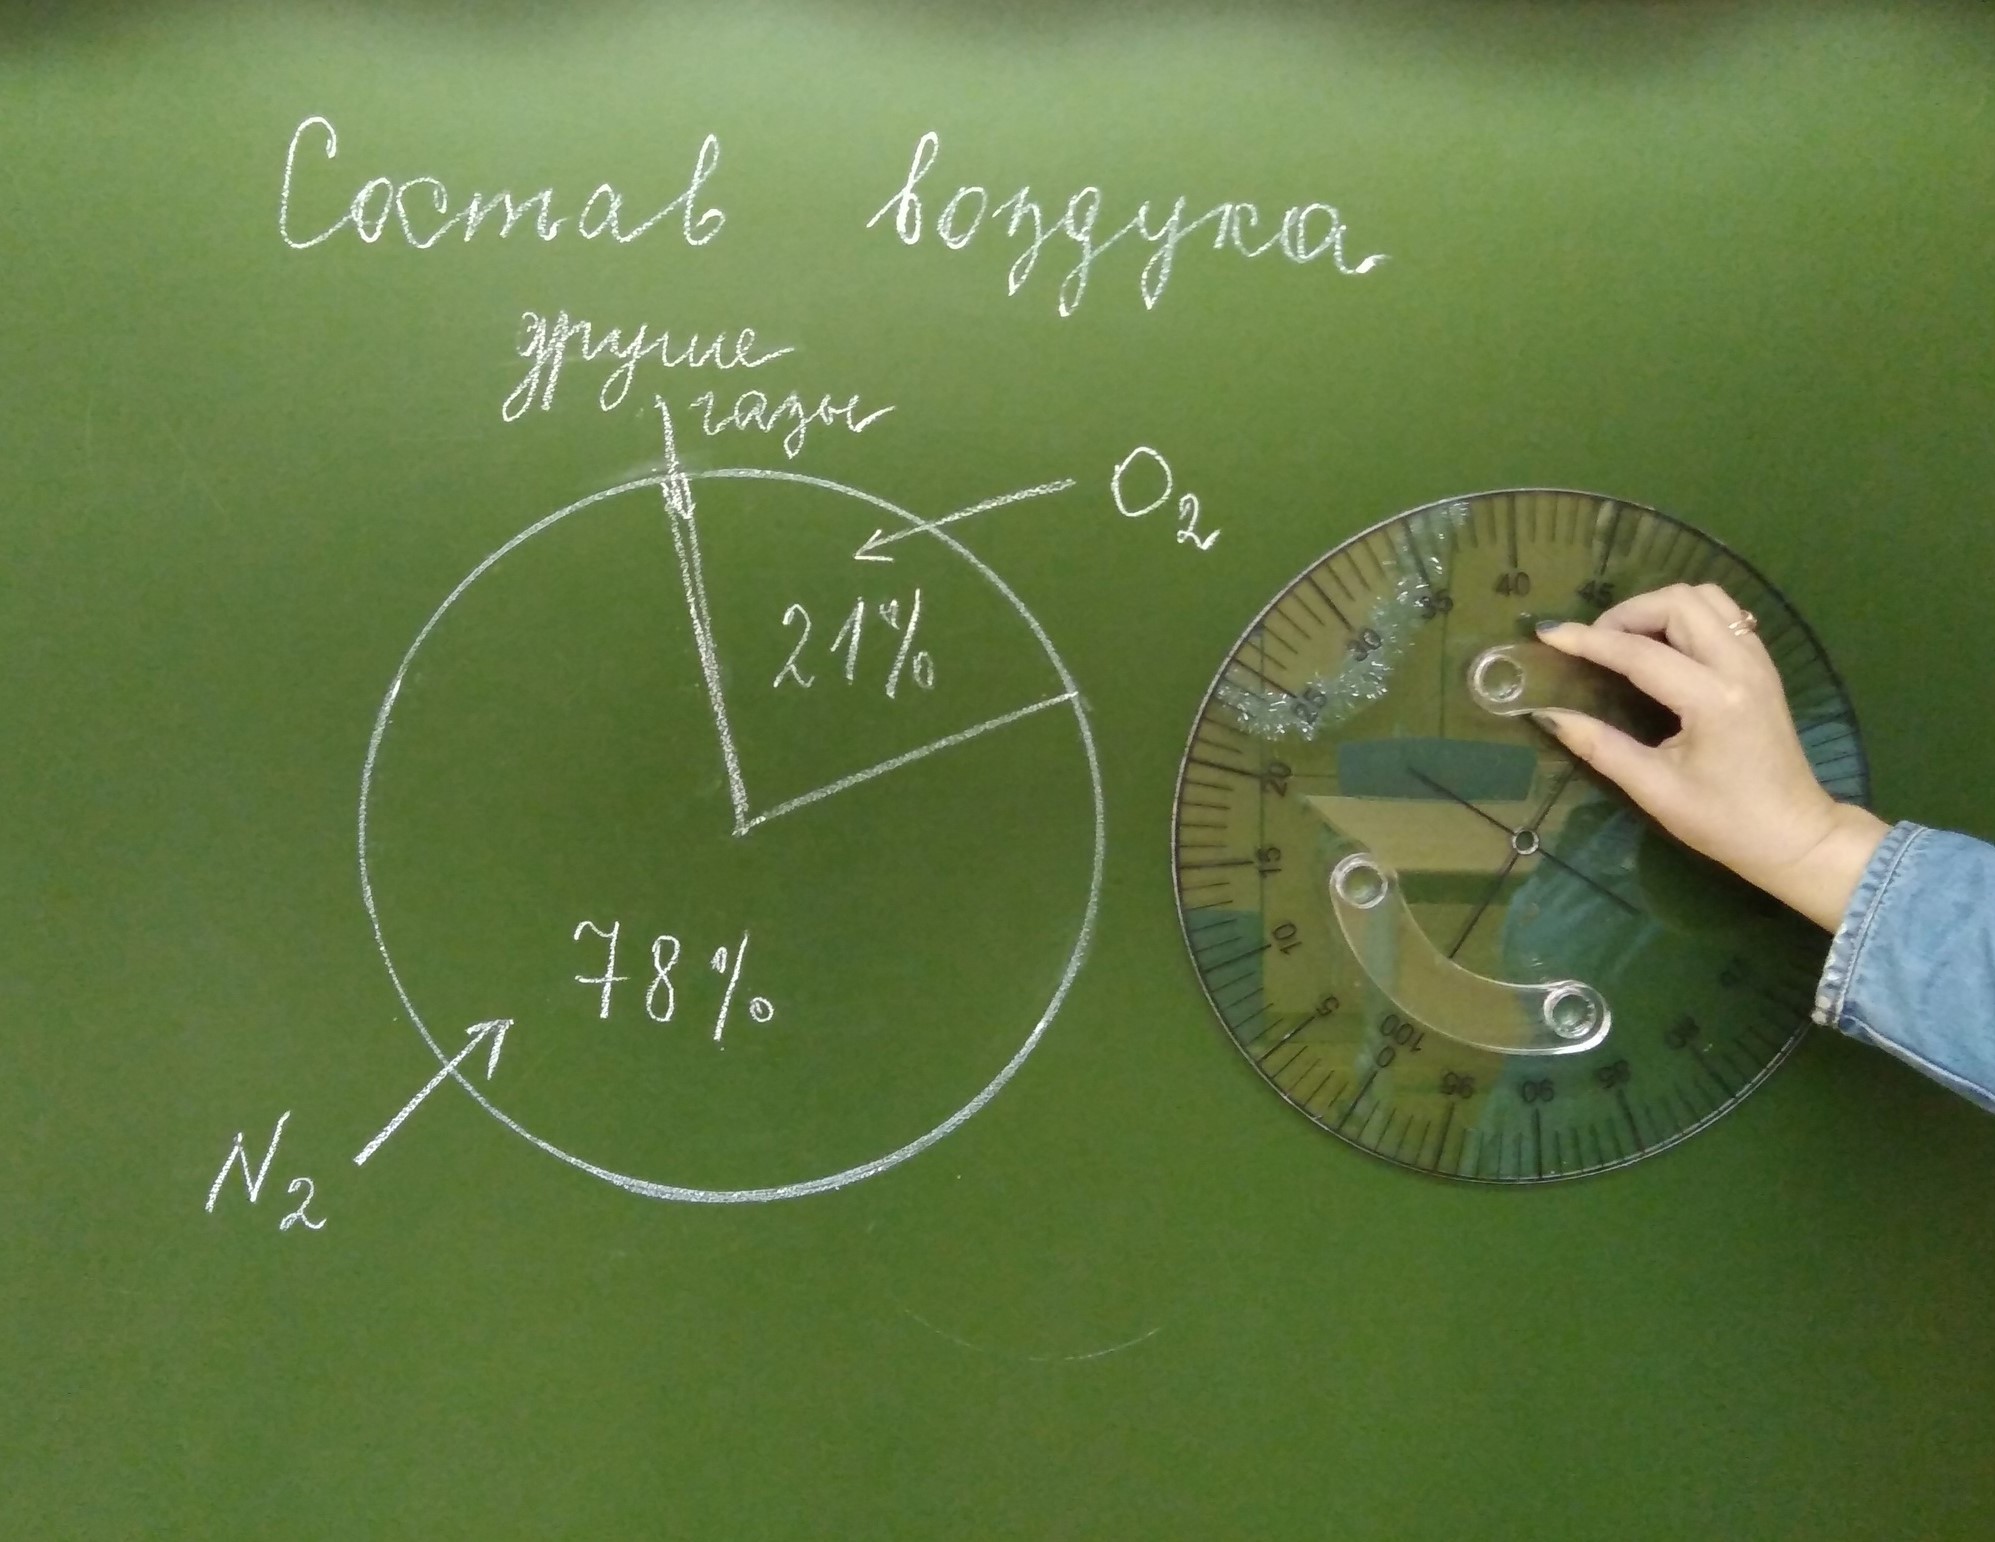 Состав воздуха
другие
газы
O2
21%
78%
N2
45
40
35
30
25
20
15
10
5
0
100
95
90
85
80